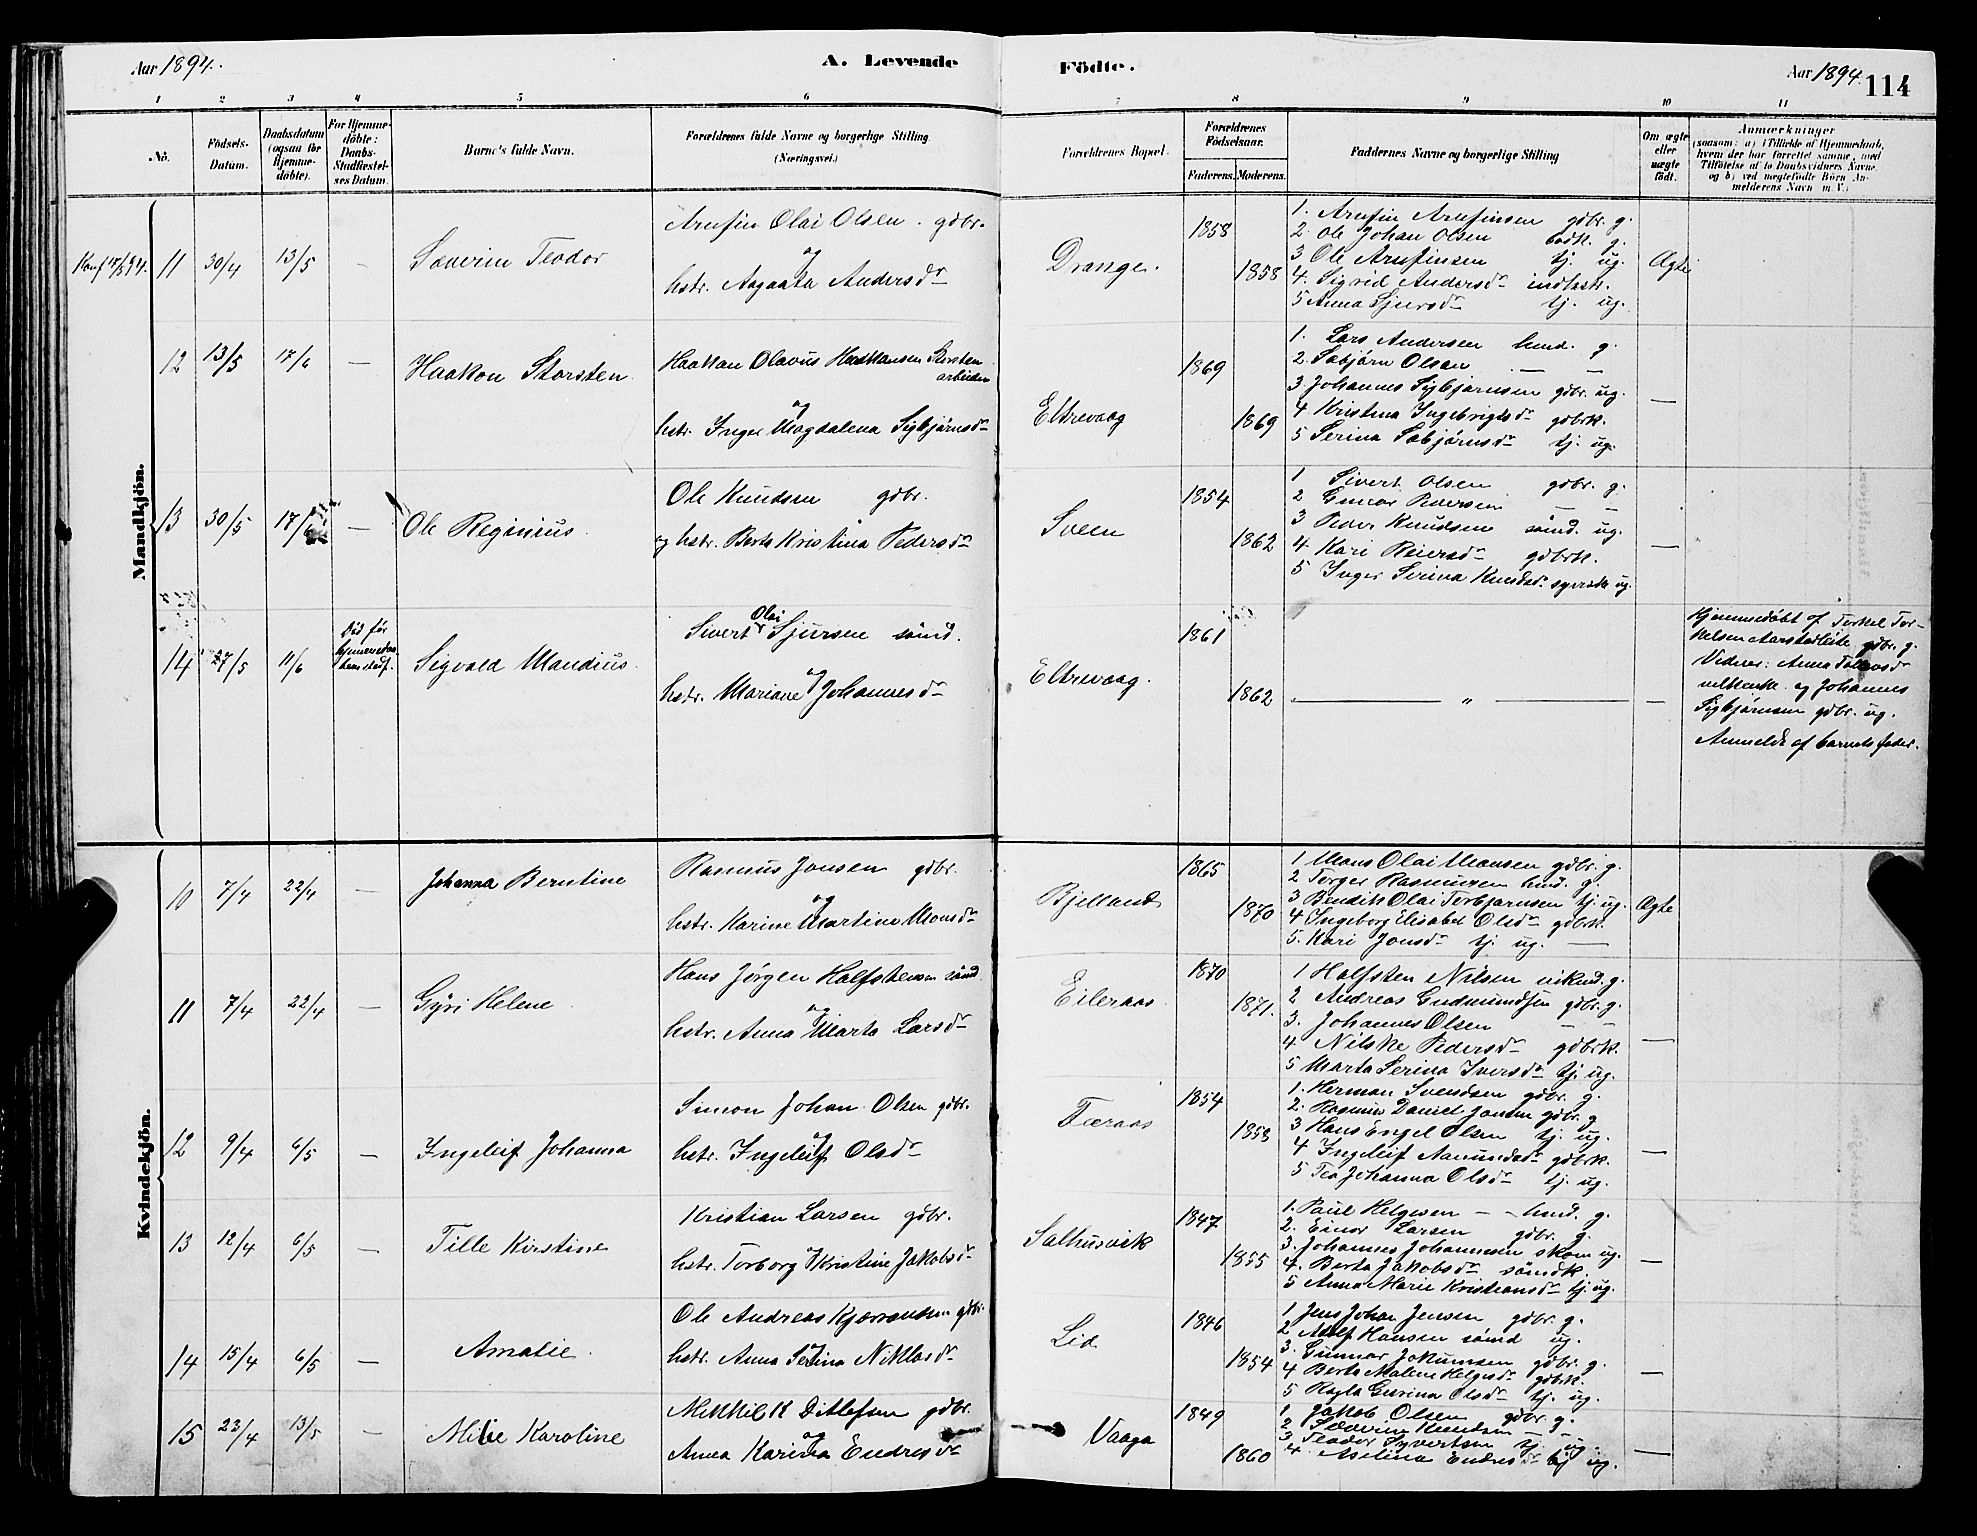 Aar 1894. A. Levende Födte. Aar 1894. 114
1 2 3 4 5 6 7 8 9 10 11
No. Födsels-Datum. Daabsdatum (ogsaa for Hjemme-döbte). For Hjemme-döbte: Daabs-Stadfæstel-ses Datum. Barnets fulde Navn. Forældrenes fulde Navne og borgerlige Stilling (Næringsvei.) Forældrenes Bopæl. Forældrenes Födselsaar. Faderens. Moderens. Faddernes Navne og borgerlige Stilling Om ægte eller uægte födt. Anmærkninger
(saasom: a) i Tilfælde af Hjemmedaab,
hvem der har forrettet samme, med
Tilföielse af to Daabsvidners Navne
og b) ved uægtefödte Börn An-
melderens Navn m. V.)
Mandkjön.
11 30/4 13/5 — Severin Teodor
Arnfin Olai Olsen. gdbr.
og
hstr. Aagaata Andersdr
Drange. 1858 1858
1. Arnfin Arnfinsen gdbr. g.
2. Ole Johan Olsen g.
3 Ole Arnfinsen tj. ug.
4. Sigrid Andersdr
5 Anna Sjursdr tj. ug.
Ægte
12 13/5 17/6 — Haakon Storsten
Haakon Olavus Haakonsen Storsten
arbeider
og
hstr. Inger Magdalena Sigbjørnsdr
Eltrevaag 1869 1869
1. Lars Andersen hmd. g.
2. Sæbjørn Olsen — —
3. Johannes Sigbjørnsen gdbr. ug.
4 Kristina Ingebrigtsdr gdbrk.
5 Serina Sæbjørnsdr tj. ug.
—
13 30/5 17/6 — Ole Reginius
Ole Knudsen gdbr.
og hstr. Berta Kristina Pedersdr
Sveen 1854 1862
1 Sivert Olsen gdbr. g.
2 Gunnar Pedersen — —
3 Peder Knudsen sømd. ug.
4 Kari Reiersdr gdbrk.
5 Inger Serina Knudsdr ug.
—
14 27/5 11/6 Død før Sigvald Mandius.
Olai
Sivert Sjursen sømd.
og
hstr. Mariane Johannesdr
Eltrevaag. 1861 1862 — " — —
Hjemmedøbt af Torkel Tor-
kelsen gdbr. g.
Vidner: Anna
og Johannes
Sigbjørnsen gdbr. ug.
Anmeldt af barnets fader.
Kvindekjön.
10 7/4 22/4 — Johanna Berntine
Rasmus Jonsen gdbr.
og
hstr. Karine Martine Monsdr
Bjelland 1865 1870
1 Mons Olai Monsen gdbr. g.
2 Torger Rasmussen hmd. g.
3 Bendik Olai Torbjørnsen tj. ug.
4 Ingeborg Elisabet Olsdr gdbrk.
5. Kari Jonsdr tj. ug. —
Ægte
11 7/4 22/4 — Gyri Helene
Hans Jørgen Halfstensen sømd.
og
hstr. Anna Marta Larsdr
Eileraas 1870 1871.
1 Halfsten Nilsen g.
2 Andreas Gudmundsen gdbr. g.
3. Johannes Olsen — —
4 Nilske Pedersdr gdbrk.
5 Marta Serina Iversdr tj. ug.
—
12 9/4 6/5 — Ingeleif Johanna
Simon Johan Olsen gdbr.
og
hstr. Ingeleif Olsdr
Færaas 1854 1858
1. Herman Svendsen gdbr. g.
2. Rasmus Daniel Jonsen gdbr. g
3 Hans Engel Olsen tj. ug.
4 Ingeleif Aamundsdr gdbrk.
5 Tea Johanna Olsdr tj. ug.
—
13 12/4 6/5 — Tille Kirstine
Kristian Larsen gdbr.
og
hstr. Torborg Kristine Jakobsdr
Salhusvik 1847 1855
1. Paul Helgesen — hmd. g.
2. Einar Larsen gdbr. g.
3. Johannes Johannesen skom. ug.
4. Berta Jakobsdr sømdk.
5 Anna Marie Kristiansdr tj. ug.
—
14 15/4 6/5 — Amalie.
Ole Andreas gdbr.
og
hstr. Anna Serina Niklasdr
Lid 1846 1854
1 Jens Johan Jensen gdbr. g.
2. Adolf Hansen sømd ug.
3. Gunnar gdbr. g.
4 Berta Malene Helgesdr gdbrk.
5 Gurina Olsdr tj. ug.
—
15 22/4 13/5 — Milie Karoline
Mikkel K Ditlefsen gdbr.
og
Anna Karina Endresdr
Vaaga 1849 1860
1. Jakob Olsen gdbr. g.
2 Severin Knudsen — —
3 Teodor Syvertsen tj. ug.
4. Aselina Endresdr tj. ug.
—